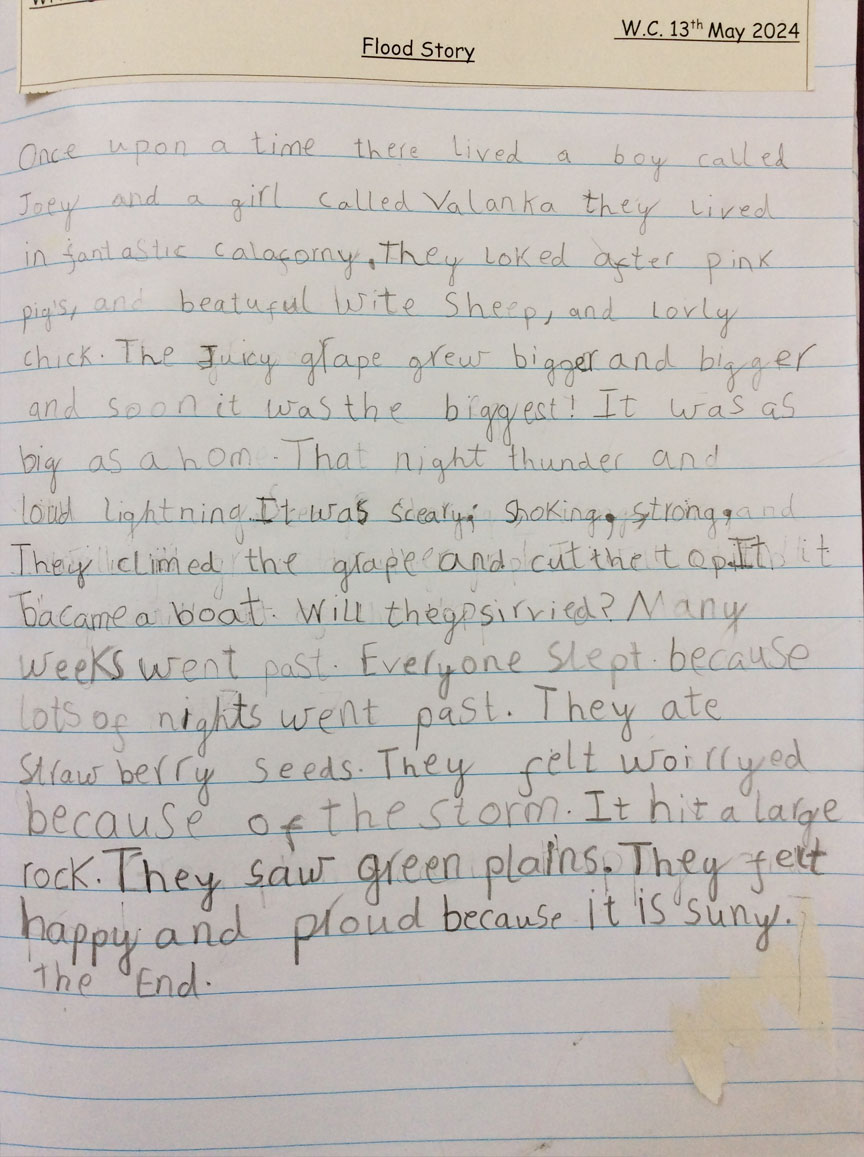 W.C. 13th May 2024
Flood Story
Once upon a time there lived a boy called
Joey and a girl called Valanka they lived
in fantastic calaforny. They loked after pink
pig's, and beatuful Wite Sheep, and lovly
chick. The Juicy grape grew bigger and bigger
and soon it was the biggest! It was as
big as a hom. That night thunder and
loud lightning. It was sceary, shoking, strong, and
They climed the grape and cut the top. It it
bacame a boat. Will they sirvied? Many
weeks went past. Everyone slept. because
lots of nights went past. They ate
straw berry seeds. They felt woirryed
because of the storm. It hit a large
rock. They saw green plains. They felt
happy and proud because it is suny.
The End.